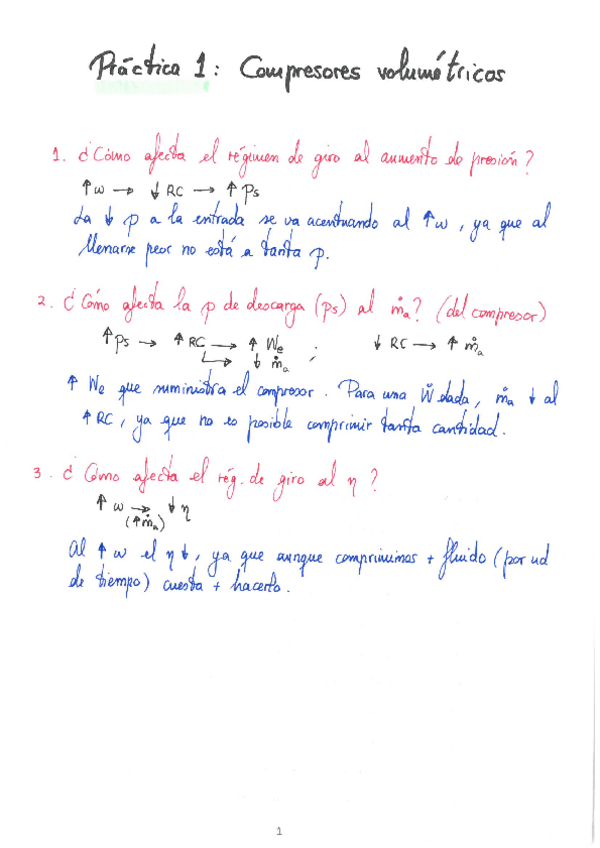 Práctica 1: Compresores volumétricos
1. ¿Cómo afecta el régimen de giro al aumento de presión?
↑ω → ↓ RC → ↑ Ps
La ↓ p a la entrada se va acentuando al ↑ω, ya que al
llenarse peor no está a tanta p.
2. ¿Cómo afecta la p de descarga (ps) al ṁa? (del compresor)
↑ps → ↑RC → ↑ We ; ↓ RC → ↑ ṁa
↳ ↓ ṁa
↑ We que suministra el compresor. Para una Ẇ dada, ṁa ↓ al
↑RC, ya que no es posible comprimir tanta cantidad.
3. ¿Cómo afecta el rég. de giro al η?
↑ ω → ↓ η
(↑ṁa)
Al ↑ ω el η↓, ya que aunque comprimimos + fluido (por ud
de tiempo) cuesta + hacerlo.
1